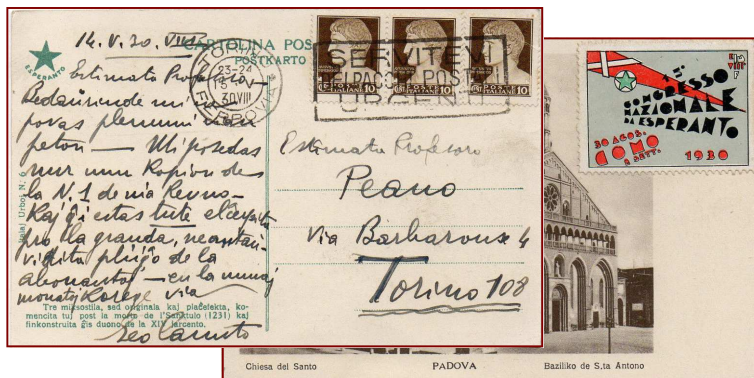 14.V.30. VIII
ESPERANTO
CARTOLINA POS
POSTKARTO
TORINO
23-24
15 V
30 VIII
FERROVIA
SERVITEVI
DEI PACCHI POSTALI
URGENTI
POSTE ITALIANE 10
POSTE ITALIANE 10
POSTE ITALIANE 10
Estimata Profesoro
Bedaŭrinde mi
povas plenumi vian
peton — Mi posedas
nur unu kopion de
la N. 1 de nia Revuo -
Kaj ĝi estas tute elĉerpita
pro la granda, neantaŭ
vidita pliiĝo de la
abonantoj — en la nunaj
monatoj Korege via
Italaj Urboj N. 6
Tre miksostila, sed originala kaj plaĉefekta, ko-
mencita tuj post la morto de l'Sanktulo (1231) kaj
finkonstruita ĝis duono de la XIV jarcento.
Estimata Profesoro
Peano
Via Barbaroux 4
Torino 108
VIII
15°
CONGRESSO
NAZIONALE
DA ESPERANTO
30 AGOS.
COMO
2 SETT.
1930
Chiesa del Santo
PADOVA
Baziliko de S.ta Antono